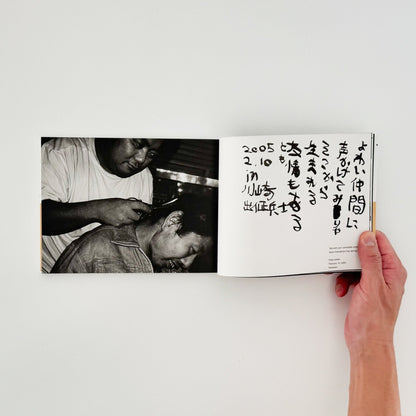 よわい仲間に
声かけてみりゃ
そこから
生まれる
友情もある
とも
2005
2.10
in
川崎
出征兵士